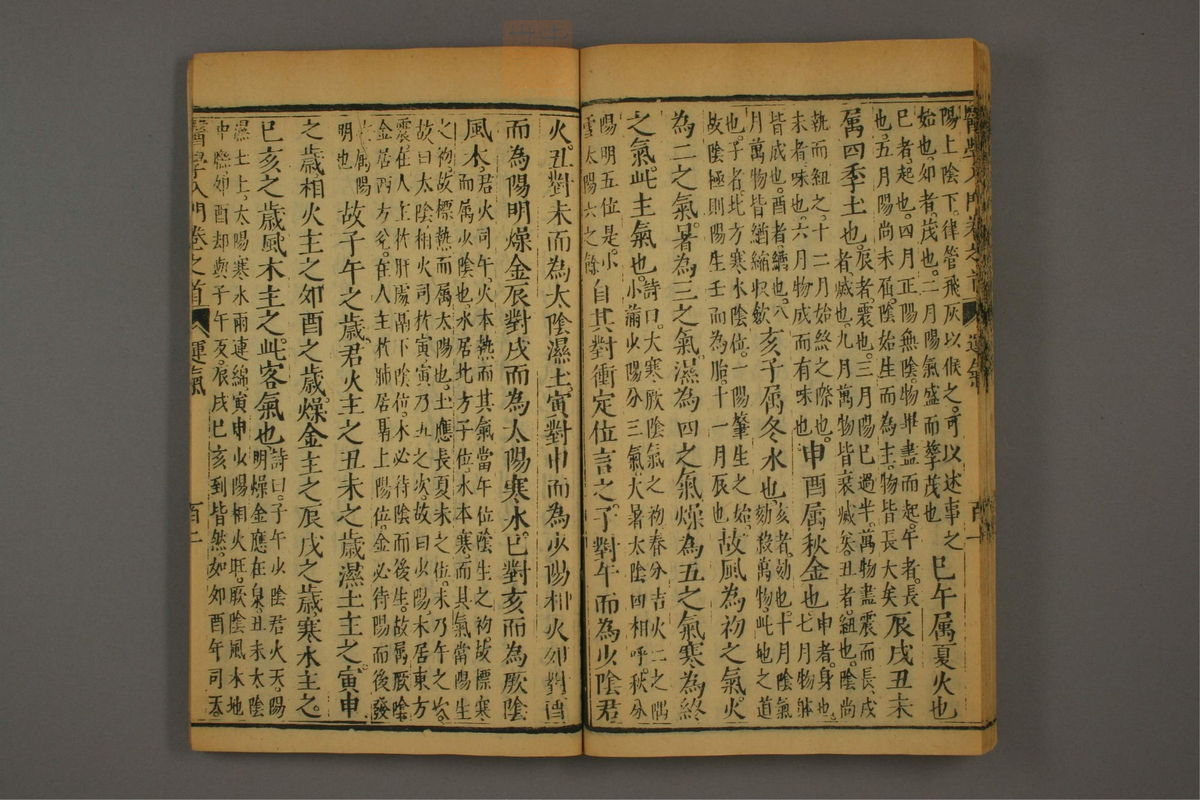 醫學入門卷之首 運氣 百一
陽上陰下。律管飛灰以候之。可以述事之
始也。卯者。茂也。二月陽氣盛而孳茂也
巳午属夏火也
巳者。起也。四月正陽無陰。物畢盡而起。午者。長
也。五月陽尚未屈。陰始生而為主。物皆長大矣
辰戌丑未
属四季土也。
辰者。震也。三月陽巳過半。萬物盡震而長。戌
者。滅也。九月萬物皆衰滅矣。丑者。紐也。陰尚
執而紐之。十二月始終之際也。
未者味也。六月物成而有味也
申酉属秋金也。
申者。身也。七月物體
皆成也。酉者。緧也。八
月萬物皆緧縮収斂
亥子属冬水也。
亥者。劾也。十月陰氣
劾殺萬物。此地之道
也。子者。北方寒水陰位。一陽肇生之始。
故陰極則陽生壬而為胎。十一月辰也
故風為初之氣。火
為二之氣。暑為三之氣。濕為四之氣。燥為五之氣。寒為終
之氣。此主氣也。
詩曰。大寒厥陰氣之初。春分君火二之隅
小滿少陽分三氣。大暑太陰四相呼。秋分
陽明五位是。小
雪太陽六之餘
自其對衝定位言之。子對午而為少陰君
火。丑對未而為太陰濕土。寅對申而為少陽相火。卯對酉
而為陽明燥金。辰對戌而為太陽寒水。巳對亥而為厥陰
風木。
君火司午。火本熱。而其氣當午位。陰生之初。故標寒
而属少陰也。水居北方子位。水本寒。而其氣當陽生
之初。故標熱而属太陽也。土應長夏未之位。未乃午之次。
故曰太陰。相火司於寅。寅乃丑之次。故曰少陽。木居東方
震。在人主於肝。處鬲下陰位。木必待陰而後生。故属厥陰
金居西方兌。在人主於肺。居鬲上陽位。金必待陽而後發
故属陽
明也
故子午之歲。君火主之。丑未之歲。濕土主之。寅申
之歲。相火主之。卯酉之歲。燥金主之。辰戌之歲。寒水主之。
巳亥之歲。風木主之。此客氣也。
詩曰。子午少陰君火天。陽
明燥金應在泉。丑未太陰
濕土上。太陽寒水雨連綿。寅申少陽相火旺。厥陰風木地
中聯。卯酉却與子午反。辰戌巳亥到皆然。如卯酉年司天
醫學入門卷之首 運氣 百二